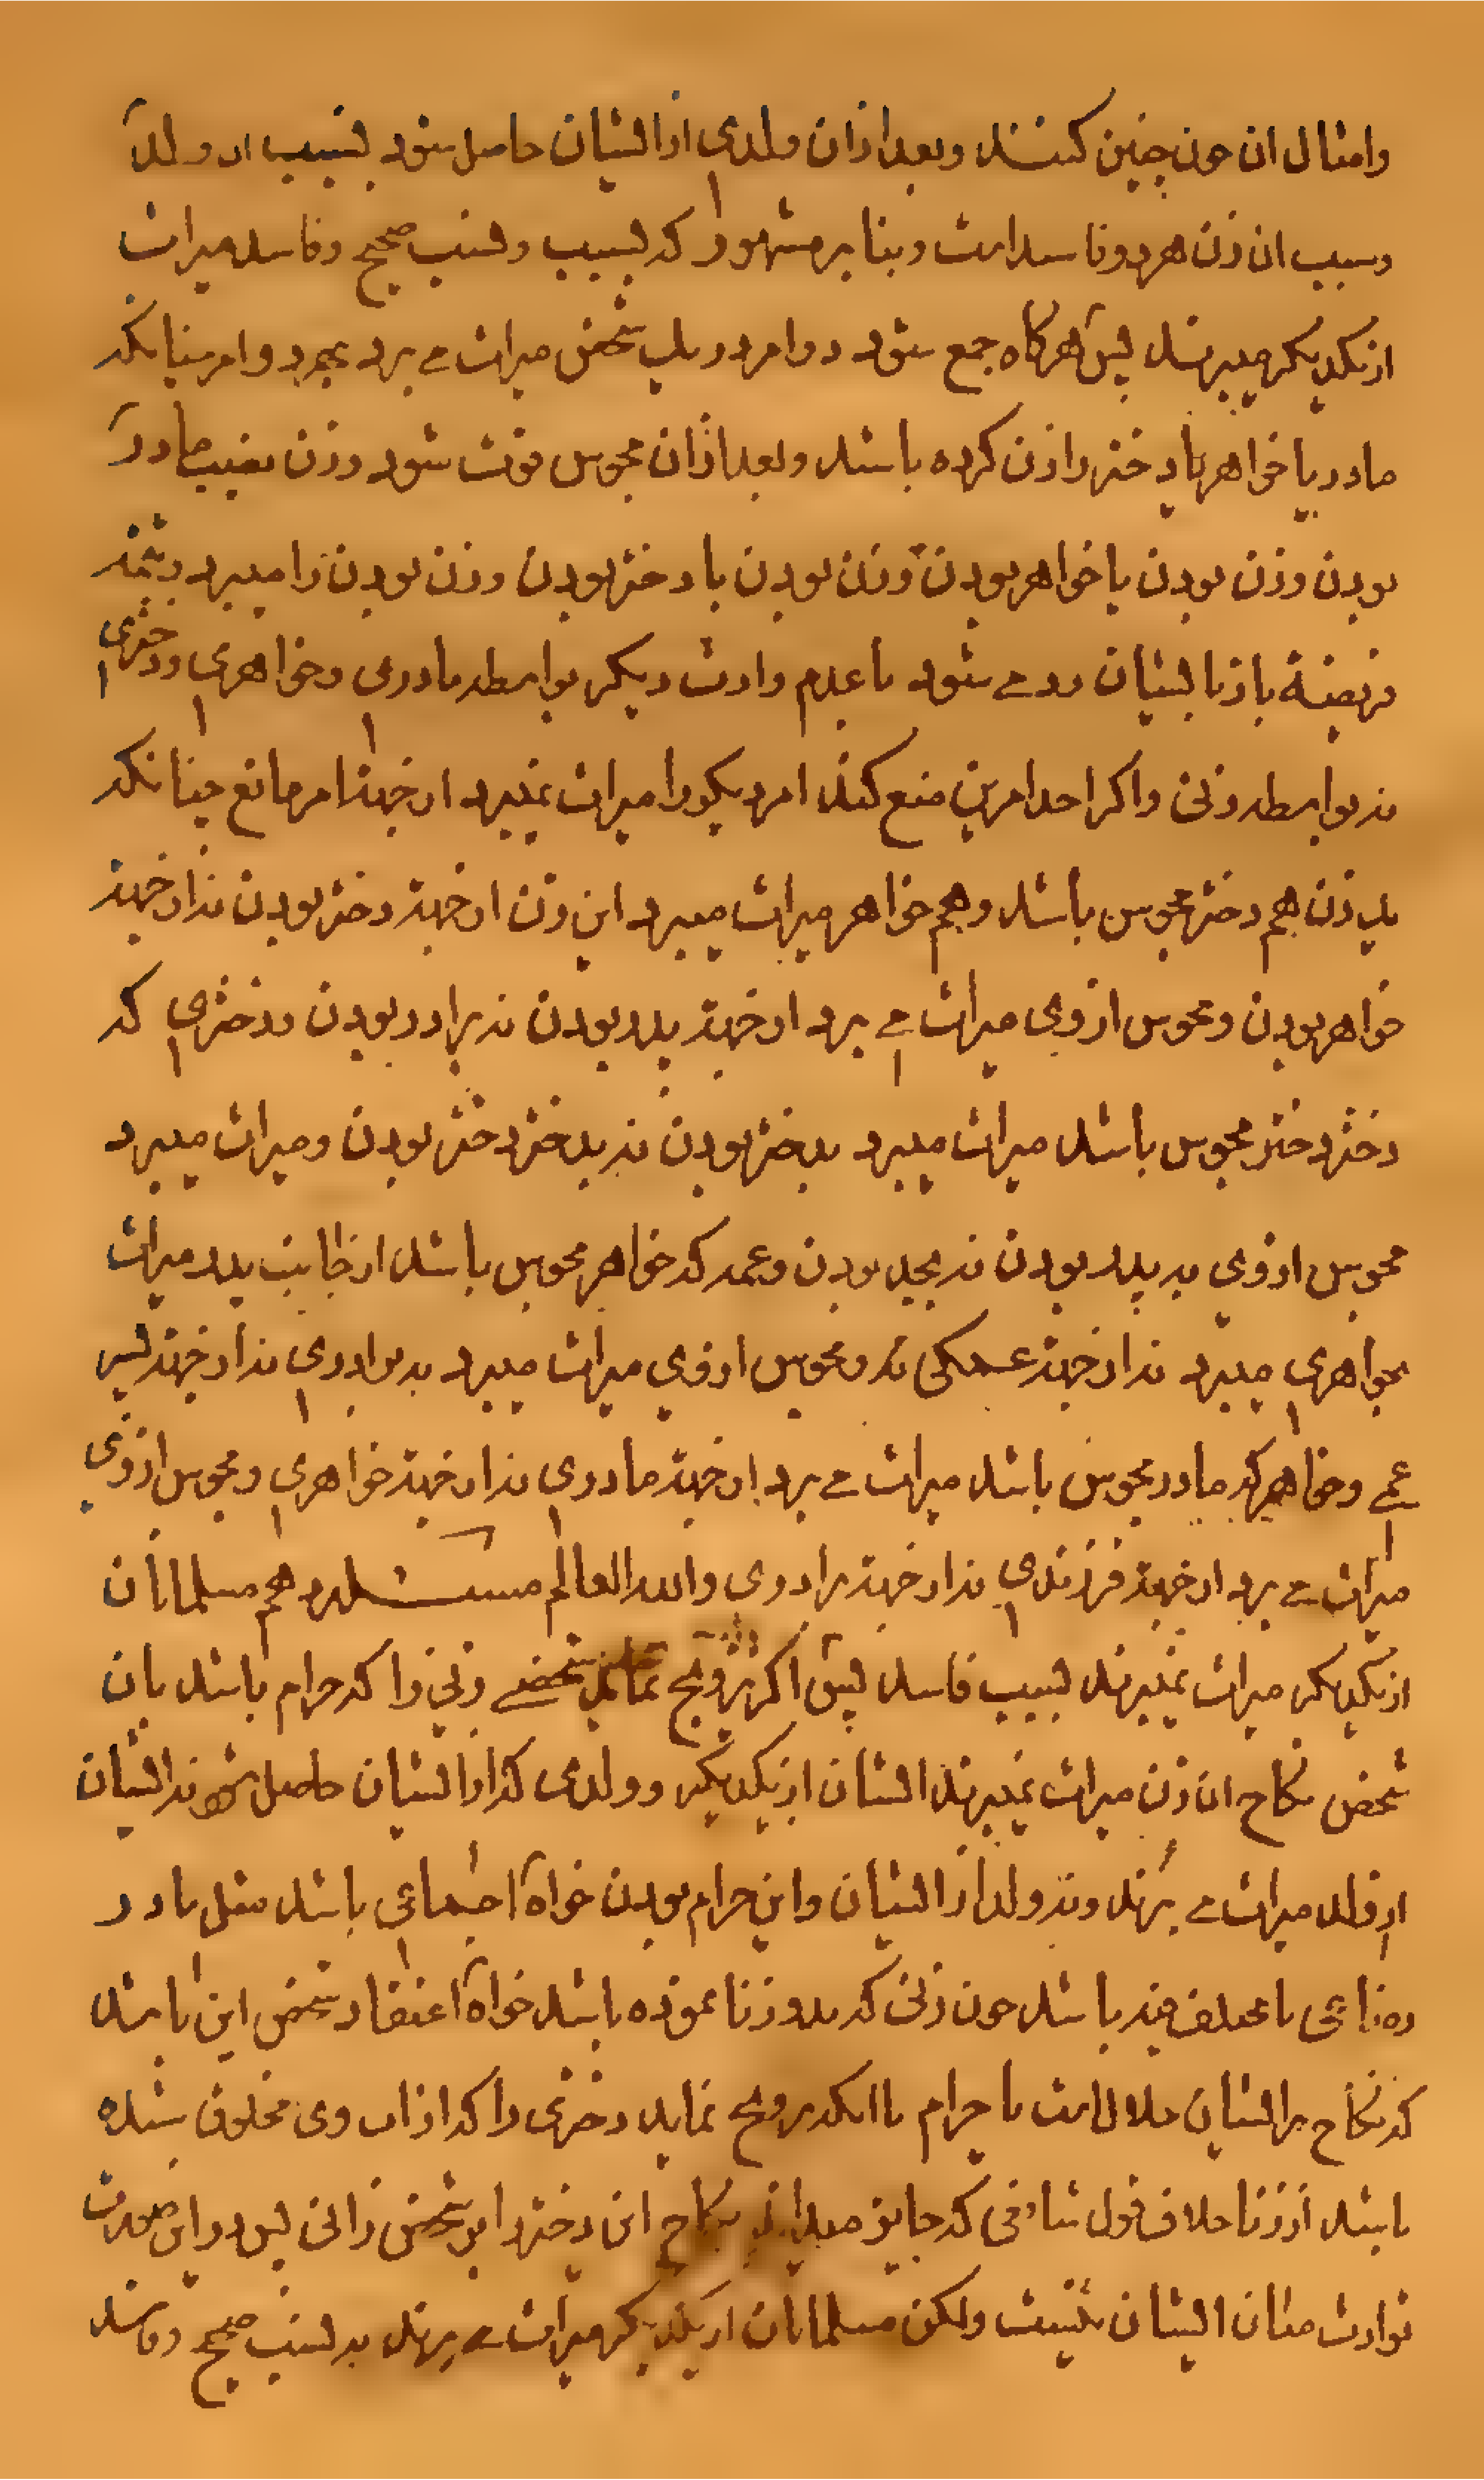 وامثال ان چون چنین کنند وبعد ازان ولدی از ایشان حاصل شود نسب ان ولد
وسبب ان زن هردو فاسد است وبنا بر مشهور که بسبب ونسب صحیح وفاسد میراث
از یکدیکر میبرند پس هرکاه جمع شود دو امر در یک شخص میراث می برد بهر دو امر چنانکه
مادر یا خواهر یا دختر را زن کرده باشد وبعد ازان مجوس فوت شود وزن نصیب مادر
بودن وزن بودن یا خواهر بودن وزن بودن یا دختر بودن وزن بودن را میبرد وتتمه
فریضة باز بایشان رد می شود با عدم وارث دیکر بواسطه مادری وخواهری ودختری
نه بواسطه زنی واکر احد امرین منع کند امر دیکر را میراث نمیبرد از جهة امر مانع چنانکه
یک زن هم دختر مجوس باشد وهم خواهر میراث میبرد این زن از جهة دختر بودن نه از جهة
خواهر بودن ومجوس از وی میراث می برد از جهة پدر بودن نه برادر بودن ودختری که
دختر دختر مجوس باشد میراث میبرد بدختر بودن نه بدختر دختر بودن ومیراث میبرد
مجوس از وی به پدر بودن نه بجد بودن وعمه که خواهر مجوس باشد از جانب پدر میراث
بخواهری میبرد نه از جهة عمکی نه ومجوس از وی میراث میبرد به برادری نه از جهة پسر
عمی وخواهر که مادر مجوس باشد میراث می برد از جهة مادری نه از جهة خواهری ومجوس از وی
میراث می برد از جهة فرزندی نه از جهة برادری والله العالم مسئله وهم مسلمانان
از یکدیکر میراث نمیبرند بسبب فاسد پس اکر تزویج نماید شخصی زنی را که حرام باشد بان
شخص نکاح ان زن میراث نمیبرند ایشان از یکدیکر وولدی که از ایشان حاصل شود نه ایشان
از ولد میراث می برند ونه ولد از ایشان واین حرام بودن خواه اجماعی باشد مثل مادر
رضاعی یا مختلف فیه باشد چون زنی که بدو زنا نموده باشد خواه اعتقاد شخص این باشد
که نکاح بر ایشان حلال است یا حرام یا انکه تزویج نماید دختری را که از اب وی مخلوق شده
باشد از زنا خلاف قول شافی که جایز میداند نکاح این دختر را بر شخص زانی پس در این صورت
توارث میان ایشان نیست ولکن مسلمانان از یکدیکر میراث می برند به نسب صحیح وفاسد